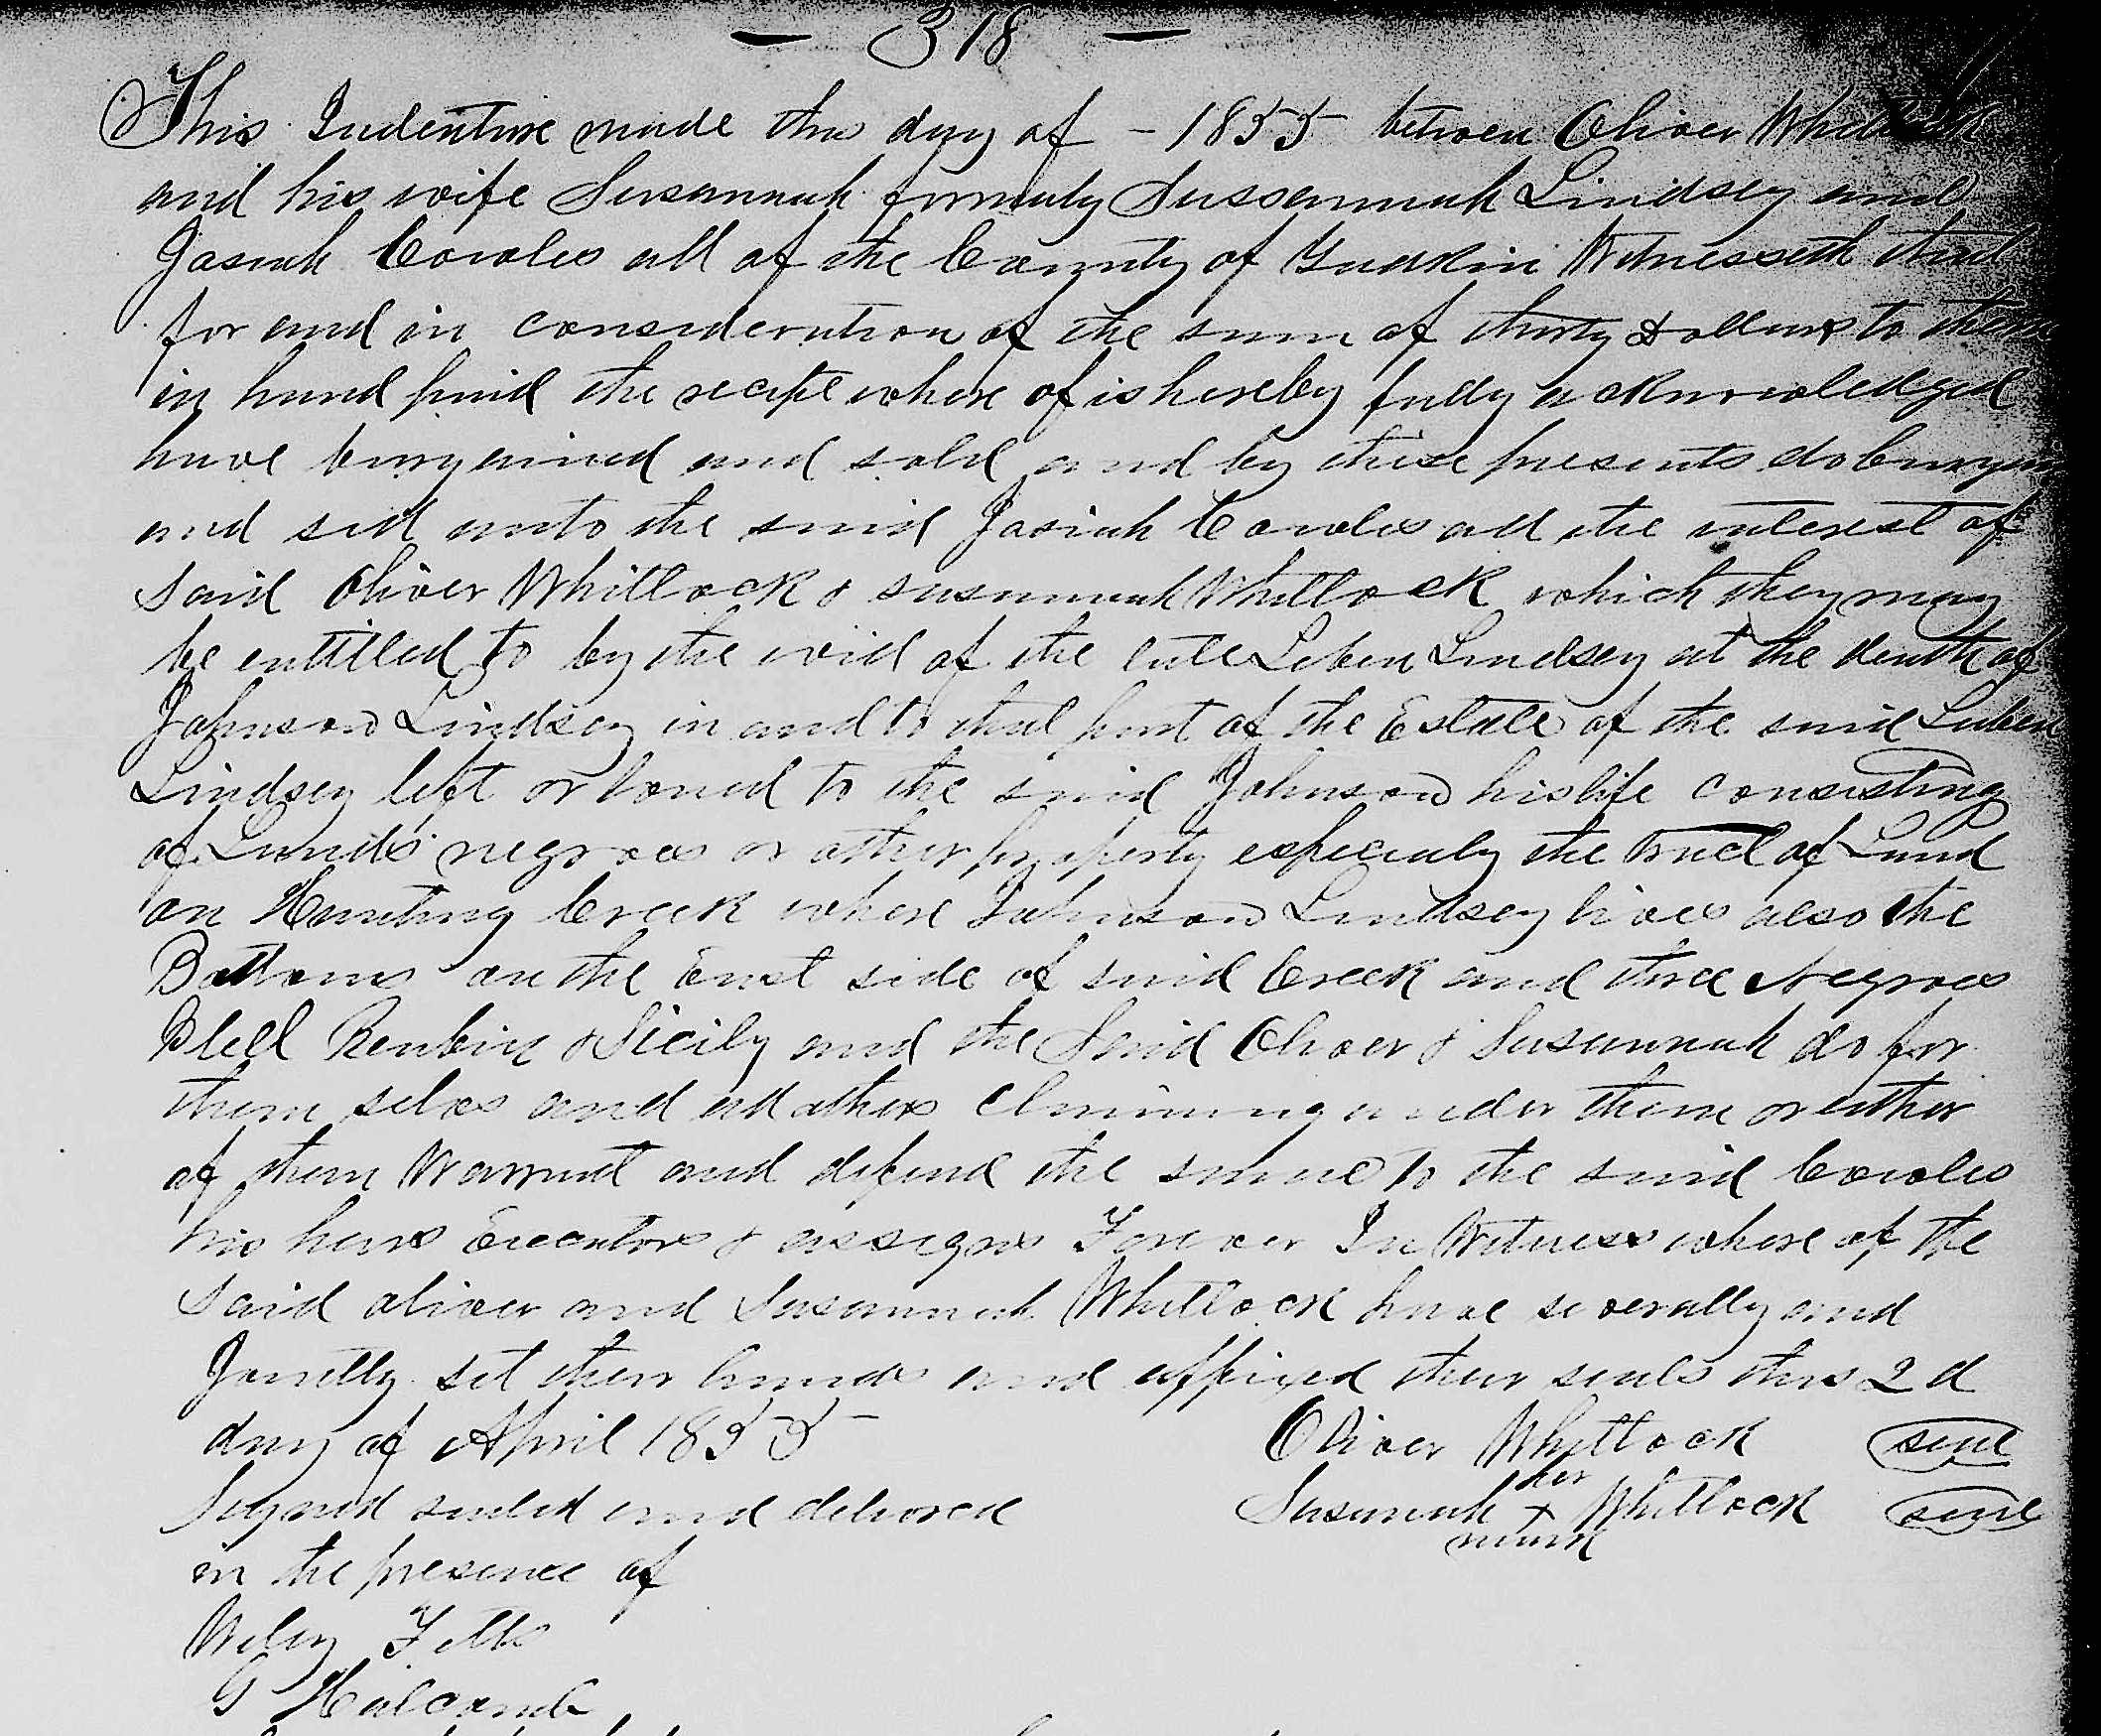 — 318 —
This Indenture made the day of - 1855 between Oliver Whitlock
and his wife Susannah formerly Sussannah Lindsey and
Josiah Cowles all of the County of Yadkin Witnesseth that
for and in consideration of the sum of thirty Dollars to them
in hand paid the recipt where of is hereby fully acknowledged
have bargained and sold and by these presents do bargain
and sell unto the said Josiah Cowles all the interest of
Said Oliver Whitlock & susannah Whitlock which they may
be entitled to by the will of the late Laben Lindsey at the death of
Johnson Lindsey in and to that part of the Estate of the said Laben
Lindsey left or loned to the said Johnson his life consisting
of Lands negroes or other property especialy the Tract of Land
on Hunting Creek where Johnson Lindsey lives also the
Bottoms on the East side of said Creek and three Negroes
Reubin & Sicily and the Said Oliver & Susannah do for
them selves and all others claiming under them or either
of them Warrant and defend the same to the said Cowles
his heirs Executors & assigns Forever In Witness where of the
Said oliver and Susannah Whitlock have severally and
Jointly set their hands and affixed their seals this 2d
day of April 1855 Oliver Whitlock seal
Signed sealed and delivered Susannah her x mark Whitlock seal
in the presence of
Wiley Felts
G Holcomb